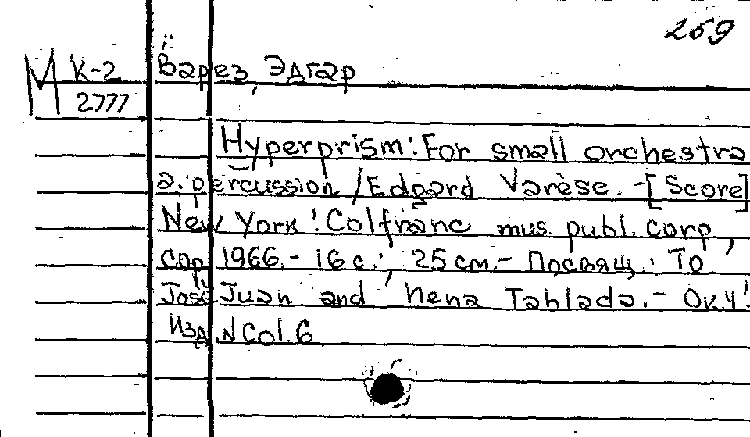 259
М К-2
2777
Варез, Эдгар
Hyperprism: For small orchestra
a. percussion / Edgard Varèse. - [Score]
New York: Colfranc mus. publ. corp.,
cop. 1966. - 16 с.; 25 см. - Посвящ.: To
José Juan and Nena Tablada. -
Изд. N Col. 6